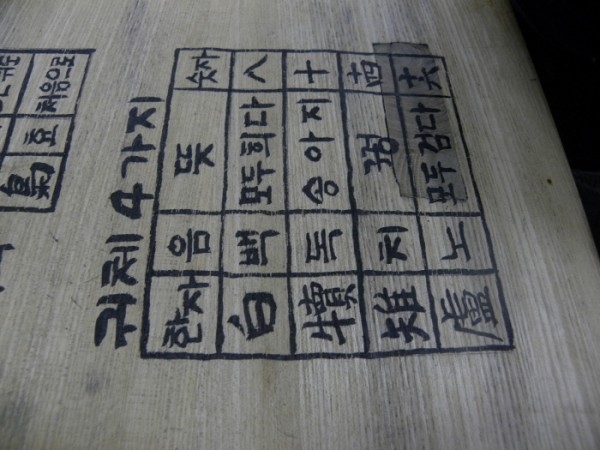 귀체 4가지
한자 음 뜻 숫자
白 백 모두희다 八
犢 독 송아지 十
雉 치 꿩 十四
盧 노 모두검다 十六
처음으로